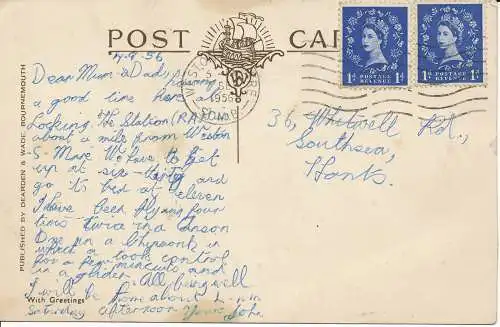 POST CARD
4.9.56
Dear Mum & Dad, having
a good time here at
Locking. The Station (RAF) is
about a mile from Weston
-S-Mare. We have to get
up at six-thirty and
go to bed at eleven
I have been flying four
times twice in a Anson
One in a Chipmonk in
which I took control
for a few mincuits and
in a glider. All being well
I will be home about 2-pm
Saturday afternoon Yours John
With Greetings
PUBLISHED BY DEARDEN & WADE, BOURNEMOUTH
WESTON
1956
1D POSTAGE REVENUE 1D
1D POSTAGE REVENUE 1D
36, Whitwell Rd.,
Southsea,
Hants.